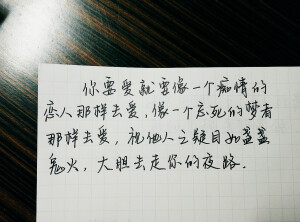 你要爱就要像一个痴情的
恋人那样去爱,像一个忘死的梦者
那样去爱,视他人之疑目如盏盏
鬼火,大胆去走你的夜路.